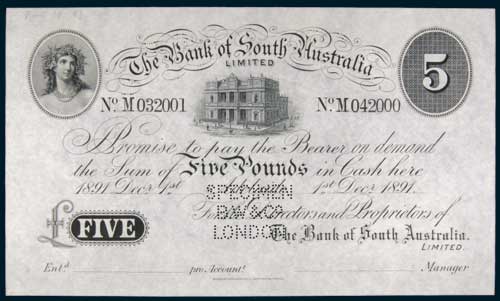 The Bank of South Australia
LIMITED
5
No. M 032001 No. M 042000
I Promise to pay the Bearer on demand
the Sum of Five Pounds in Cash here
1891 Decr. 1st 1st Decr. 1891.
SPECIMEN
For Directors and Proprietors of
B.W. & Co.
£ FIVE LONDON The Bank of South Australia.
LIMITED.
Ent.d pro Account.t Manager